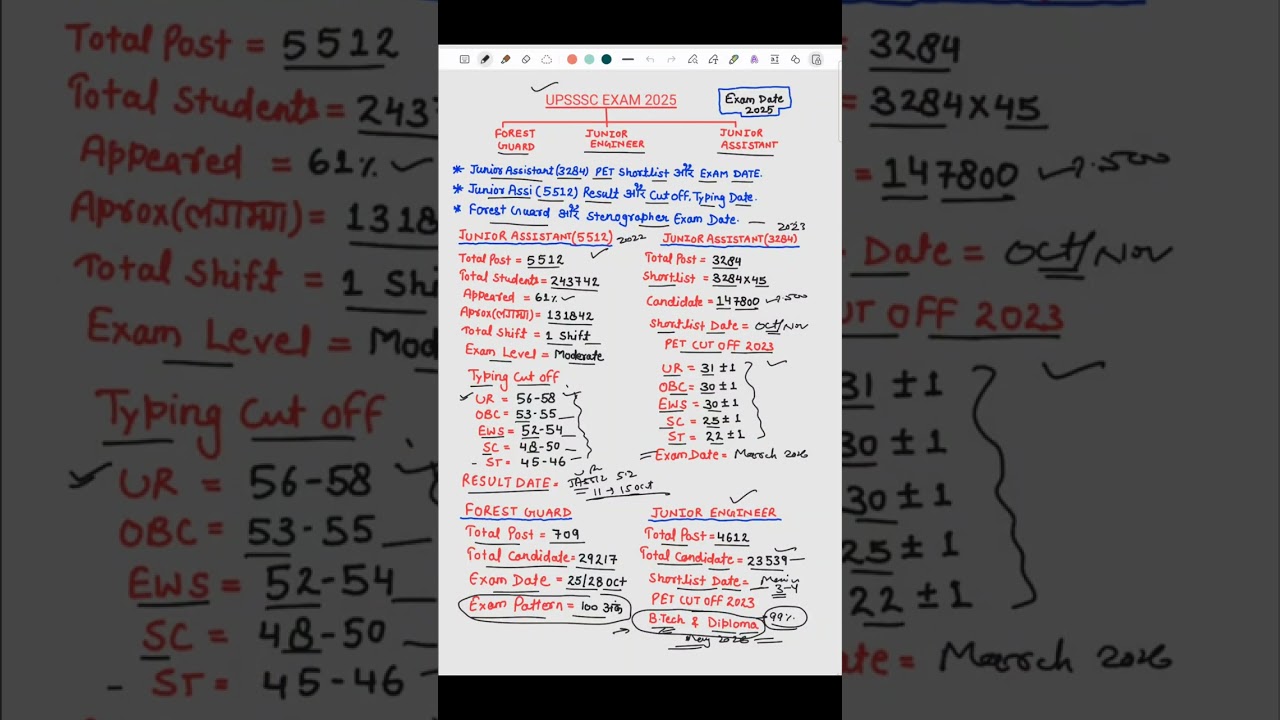 UPSSSC EXAM 2025
Exam Date
2025
FOREST GUARD
JUNIOR ENGINEER
JUNIOR ASSISTANT
* Junior Assistant(3284) PET Shortlist और EXAM DATE.
* Junior Assi (5512) Result और Cut off, Typing Date.
* Forest Guard और Stenographer Exam Date. — 2023
JUNIOR ASSISTANT(5512) 2022
Total Post = 5512
Total Students = 243742
Appeared = 61%
Aprox(लगभग) = 131842
Total Shift = 1 Shift
Exam Level = Moderate
Typing Cut off
UR = 56-58
OBC = 53-55
EWS = 52-54
SC = 48-50
- ST = 45-46
RESULT DATE =
11 → 15 oct
JUNIOR ASSISTANT(3284)
Total Post = 3284
Shortlist = 3284x45
Candidate = 147800
Shortlist Date = Oct/Nov
PET CUT OFF 2023
UR = 31 ±1
OBC = 30 ±1
EWS = 30 ±1
SC = 25 ±1
ST = 22 ±1
Exam Date = March 2026
FOREST GUARD
Total Post = 709
Total Candidate = 29217
Exam Date = 25/28 Oct
Exam Pattern = 100 अंक
JUNIOR ENGINEER
Total Post = 4612
Total Candidate = 23539
Shortlist Date =
3-4
PET CUT OFF 2023
B.Tech & Diploma 99%
May 2026
Total Post = 5512
Total Students = 2437
Appeared = 61%
Aprox(लगभग) = 1318
Total Shift = 1 Shi
Exam Level = Mod
Typing Cut off
UR = 56-58
OBC = 53-55
EWS = 52-54
SC = 48-50
- ST = 45-46
= 3284
3284x45
= 147800
Date = Oct/Nov
OFF 2023
31 ±1
30 ±1
30 ±1
25 ±1
22 ±1
ate = March 2026